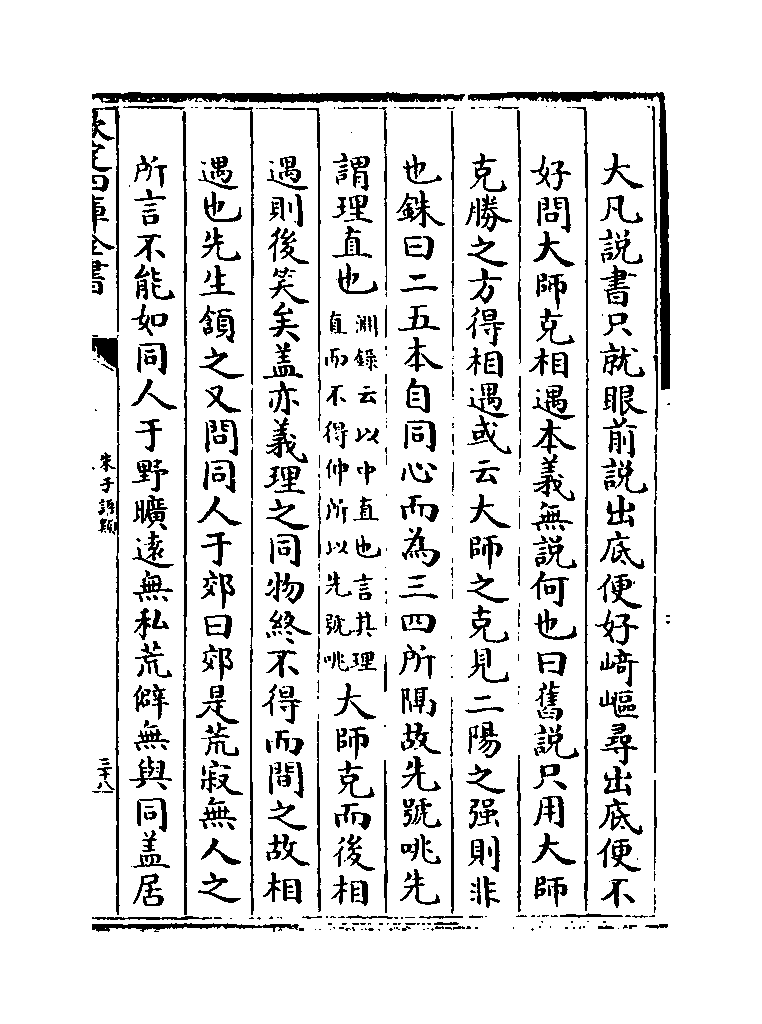 大凡説書只就眼前説出底便好﨑嶇尋出底便不
好問大師克相遇本義無説何也曰舊説只用大師
克勝之方得相遇或云大師之克見二陽之强則非
也銖曰二五本自同心而為三四所隔故先號咷先
謂理直也淵錄云以中直也言其理直而不得伸所以先號咷大師克而後相
遇則後笑矣盖亦義理之同物終不得而間之故相
遇也先生頷之又問同人于郊曰郊是荒寂無人之
所言不能如同人于野曠遠無私荒僻無與同盖居
欽定四庫全書
朱子語類
三十八